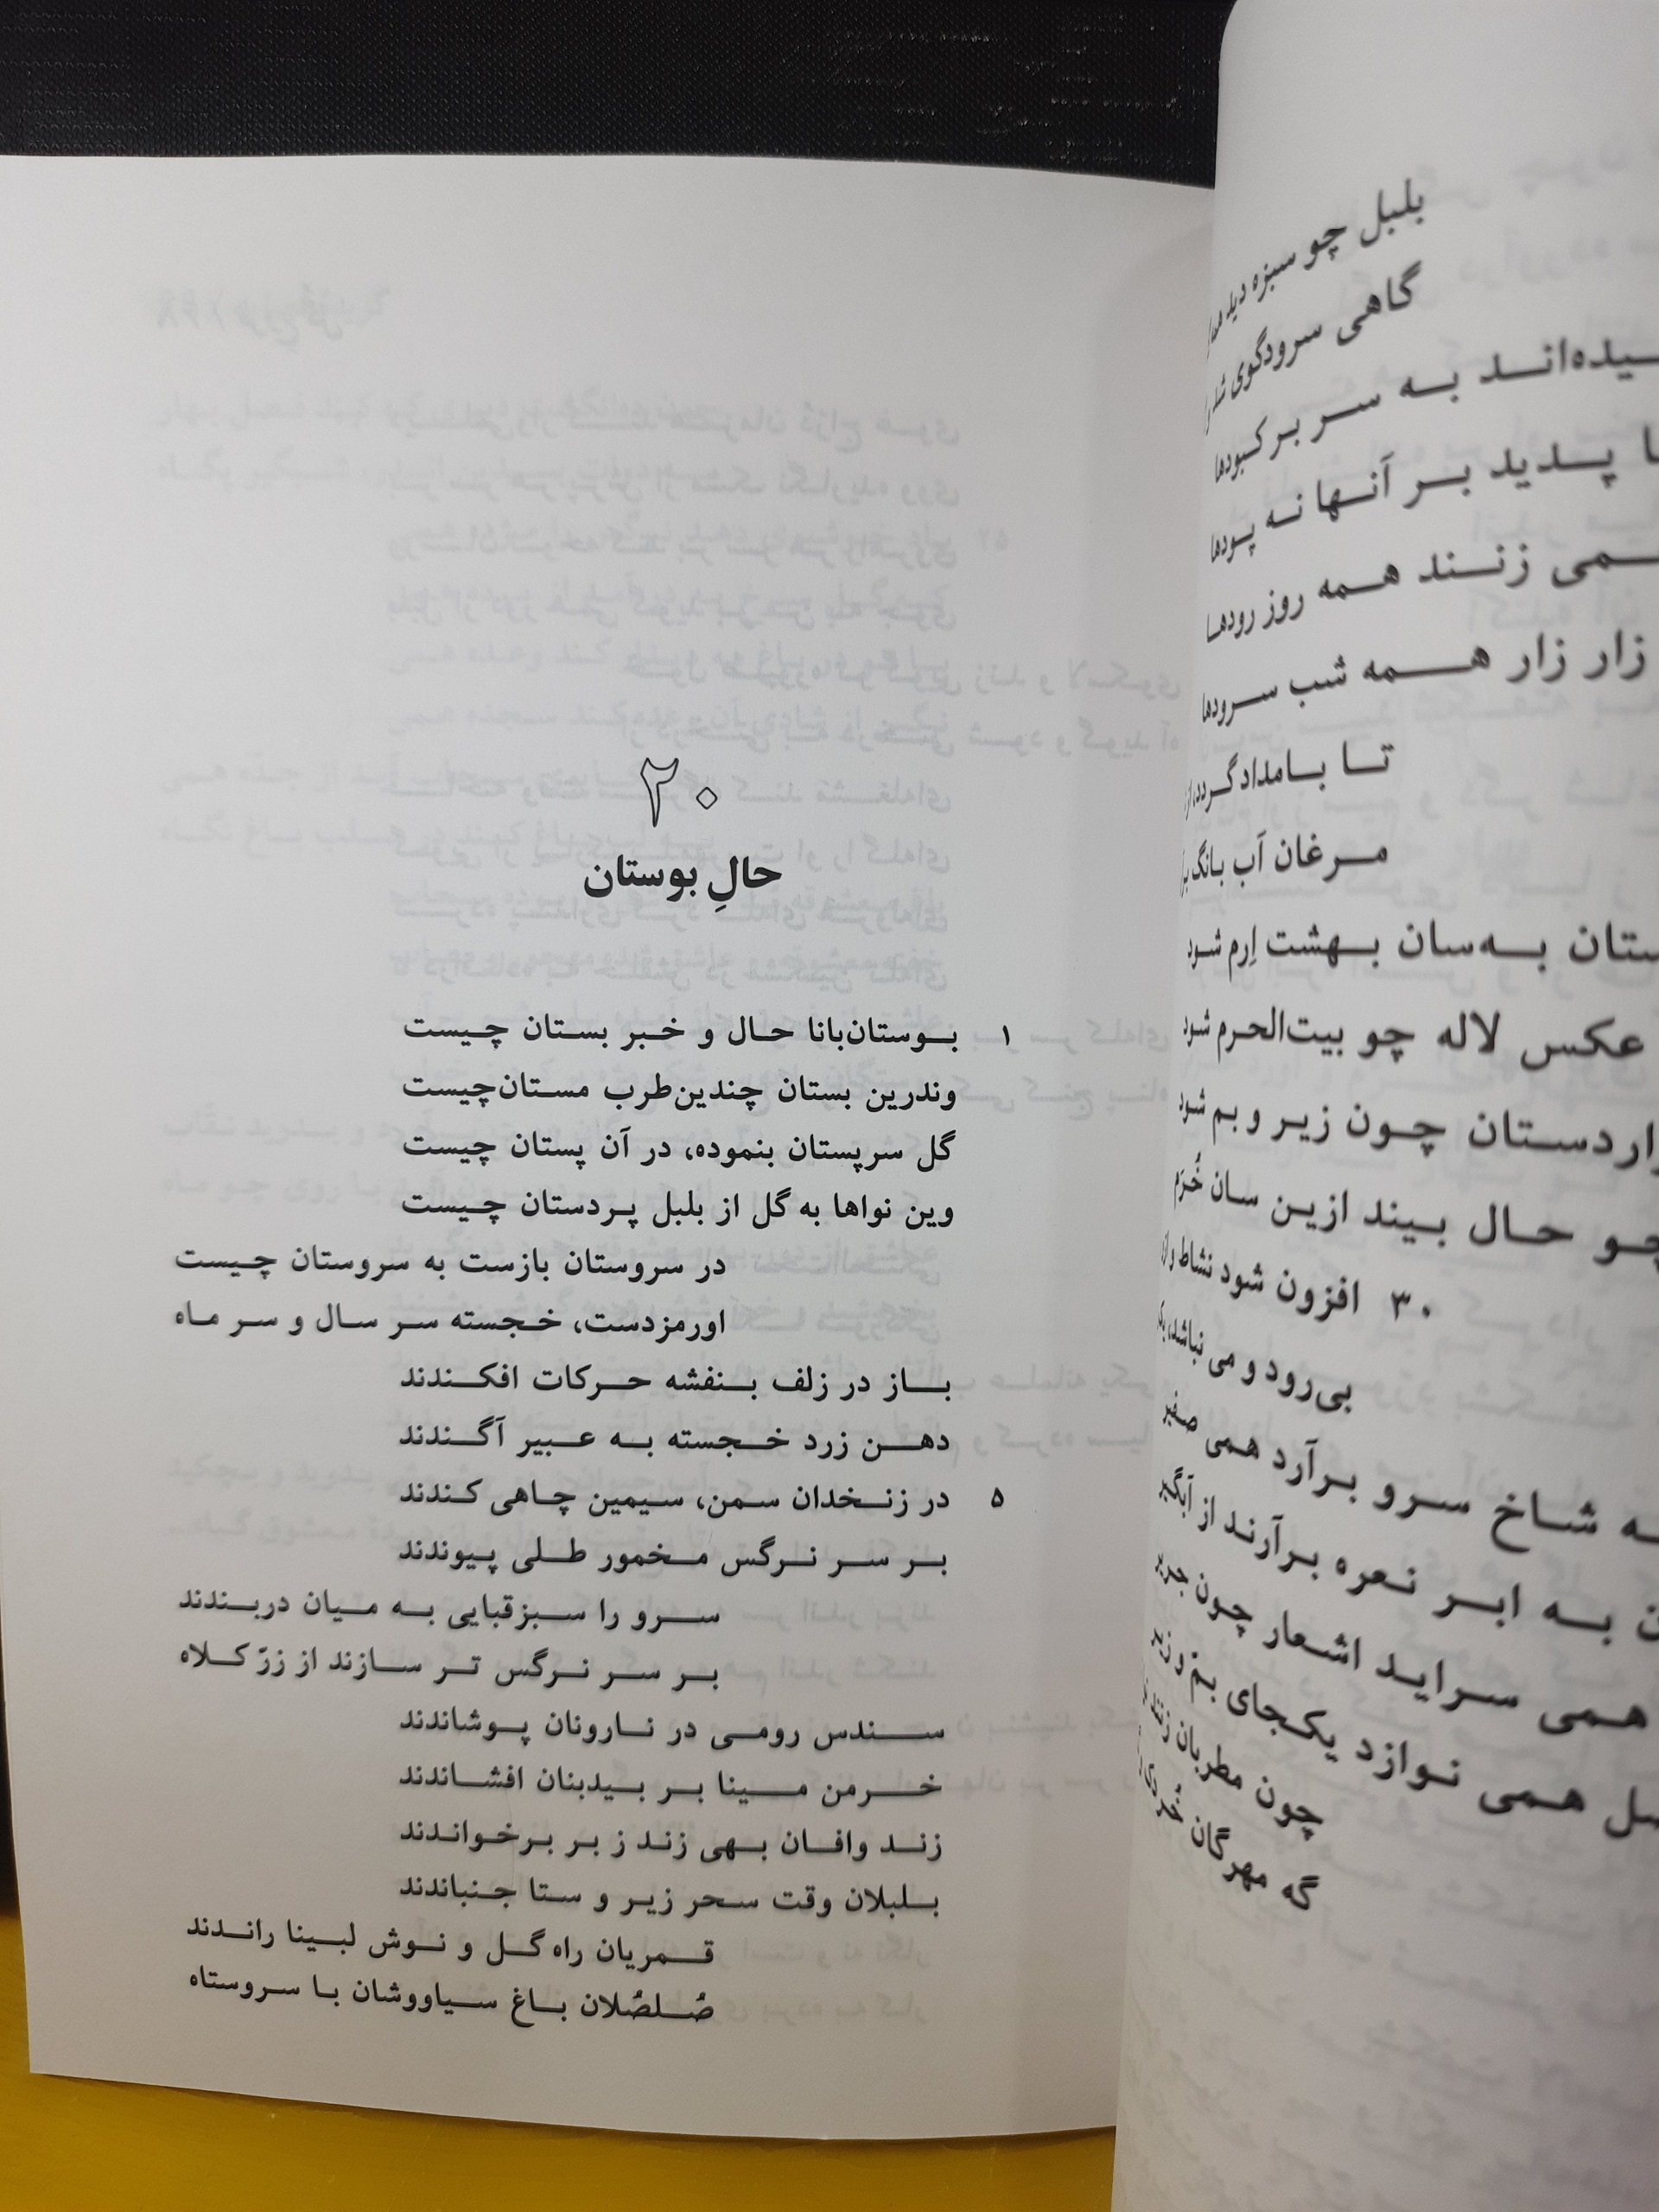 بلبل چو سبزه دید
گاهی سرودگوی شد
به سر بر کبودها
پدید بر آنها نه پودها
زنند همه روز رودها
زار زار همه شب سرودها
تا بامداد گردد
مرغان آب بانگ
به‌سان بهشت اِرم شود
عکس لاله چو بیت‌الحرم شود
چون زیر و بم شود
حال بیند ازین سان خُرّم
۳۰ افزون شود نشاط و
بی‌رود و می نباشد
شاخ سرو برآرد همی صفیر
به ابر نعره برآرند از آبگیر
همی سراید اشعار چون جریر
همی نوازد یکجای بم و زیر
چون مطربان زنند
گه مهرگان
۲۰
حالِ بوستان
۱ بوستان‌بانا حال و خبر بستان چیست
وندرین بستان چندین‌طرب مستان‌چیست
گل سرپستان بنموده، در آن پستان چیست
وین نواها به گل از بلبل پردستان چیست
در سروستان بازست به سروستان چیست
اورمزدست، خجسته سر سال و سر ماه
باز در زلف بنفشه حرکات افکندند
دهن زرد خجسته به عبیر آگندند
۵ در زنخدان سمن، سیمین چاهی کندند
بر سر نرگس مخمور طلی پیوندند
سرو را سبزقبایی به میان دربندند
بر سر نرگس تر سازند از زرّ کلاه
سندس رومی در نارونان پوشاندند
خرمن مینا بر بیدبنان افشاندند
زند وافان بهی زند ز بر برخواندند
بلبلان وقت سحر زیر و ستا جنباندند
قمریان راه گل و نوش لبینا راندند
صُلصُلان باغ سیاووشان با سروستاه